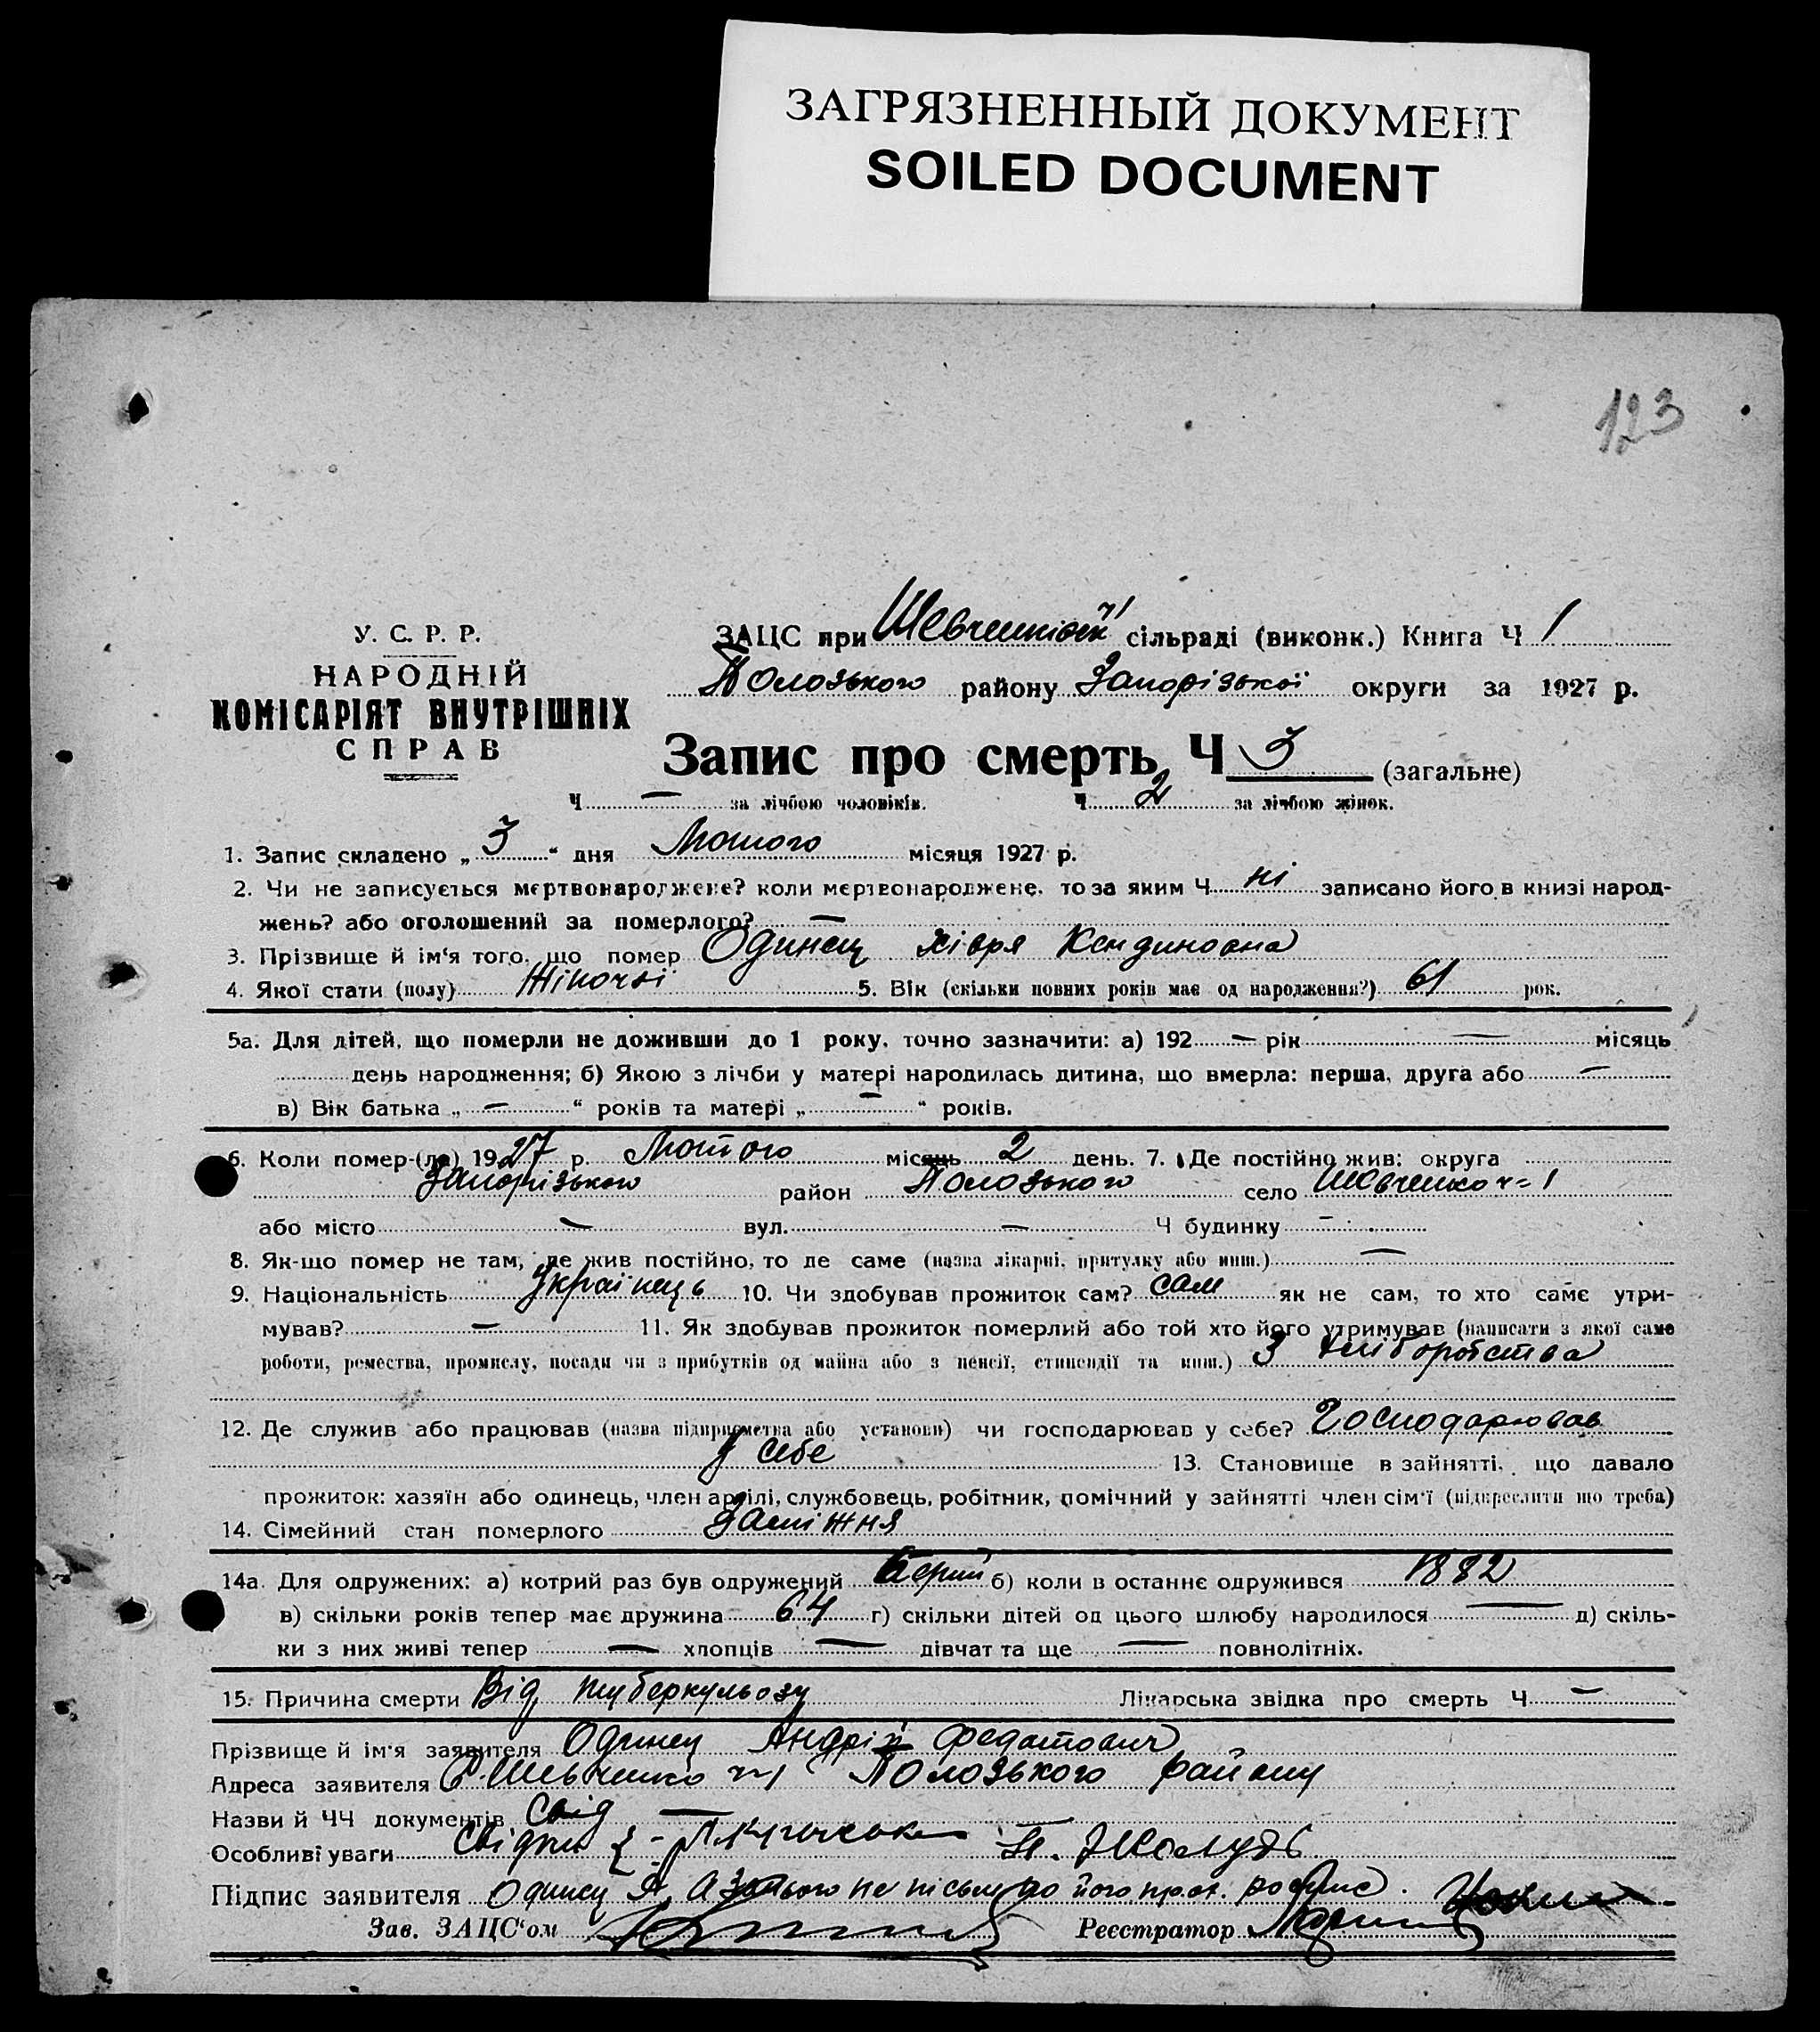 ЗАГРЯЗНЕННЫЙ ДОКУМЕНТ
SOILED DOCUMENT
123
У. С. Р. Р.
НАРОДНІЙ
КОМІСАРІЯТ ВНУТРІШНІХ
СПРАВ
ЗАЦС при Шевченківськ ч1 сільраді (виконк.) Книга Ч 1
Полозького району Запорізької округи за 1927 р.
Запис про смерть Ч 3 (загальне)
Ч — за лічбою чоловіків. Ч 2 за лічбою жінок.
1. Запис складено „ 3 “ дня Лютого місяця 1927 р.
2. Чи не записується мертвонароджене? коли мертвонароджене, то за яким Ч ні записано його в книзі народ-
жень? або оголошений за померлого? —
3. Прізвище й ім'я того, що помер Одинец Хівря
4. Якої стати (полу) Жіночої 5. Вік (скільки повних років має од народження?) 61 рок.
5а. Для дітей, що померли не доживши до 1 року, точно зазначити: а) 192 — рік — місяць
день народження; б) Якою з лічби у матері народилась дитина, що вмерла: перша, друга або —
в) Вік батька „ — “ років та матері „ — “ років.
6. Коли помер-(ла) 1927 р. Лютого місяць 2 день. 7. Де постійно жив: округа
Запорізького район Полозького село Шевченко ч-1
або місто — вул. — Ч будинку —
8. Як-що помер не там, де жив постійно, то де саме (назва лікарні, притулку або инш.) —
9. Національність Українець 10. Чи здобував прожиток сам? сам як не сам, то хто саме утри-
мував? — 11. Як здобував прожиток померлий або той хто його утримував (написати з якої саме
роботи, ремества, промислу, посади чи з прибутків од майна або з пенсії, стипендії та инш.) З хліборобства
12. Де служив або працював (назва підприємства або установи) чи господарював у себе? Господарював
у себе 13. Становище в зайнятті, що давало
прожиток: хазяїн або одинець, член артілі, службовець, робітник, помічний у зайнятті член сім'ї (підкреслити що треба)
14. Сімейний стан померлого Заміжня
14а. Для одружених: а) котрий раз був одружений б) коли в останнє одружився 1882
в) скільки років тепер має дружина 64 г) скільки дітей од цього шлюбу народилося — д) скіль-
ки з них живі тепер — хлопців — дівчат та ще — повнолітніх.
15. Причина смерти Від туберкульозу Лікарська звідка про смерть Ч —
Прізвище й ім'я заявителя Одинец Андрій Федотович
Адреса заявителя С. Шевченко ч-1 Полозького району
Назви й ЧЧ документів Свід —
Особливі уваги Свідки { П. Жолудь
Підпис заявителя Одинец А, а за його не письм по його прох. розпис.
Зав. ЗАЦС'ом Реєстратор